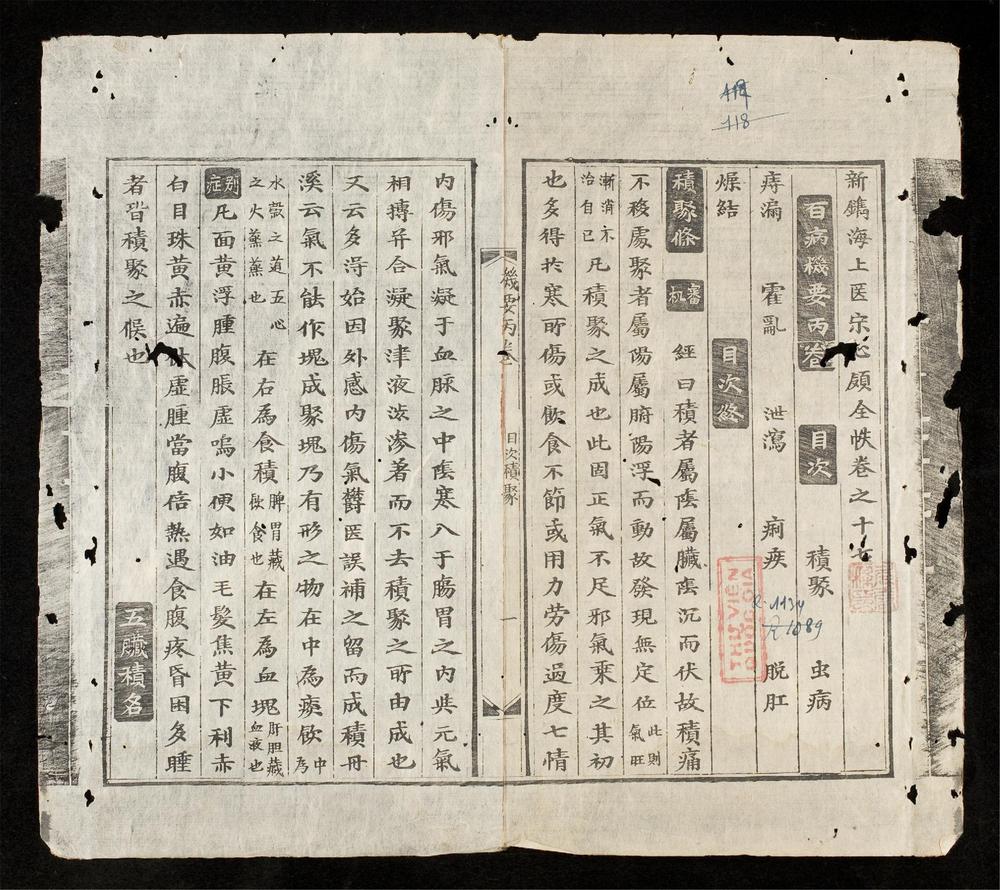 新鐫海上医宗心領全帙卷之十七
百病機要丙卷 目次 積聚 虫病
痔漏 霍亂 泄瀉 痢疾 脱肛
燥結
目次终
積聚條 審机 經曰積者屬陰屬臟陰沉而伏故積痛
不移處聚者屬陽屬腑陽浮而動故發現無定位此則氣旺
漸消不治自已凡積聚之成也此因正氣不足邪氣乗之其初
也多得於寒所傷或飲食不節或用力劳傷過度七情
幾要丙卷 目次積聚 一
内傷邪氣凝于血脉之中陰寒入于腸胃之内與元氣
相搏并合凝聚津液澁滲著而不去積聚之所由成也
又云多淂始因外感内傷氣欝医誤補之留而成積丹
溪云氣不能作塊成聚塊乃有形之物在中為痰飲中為
水穀之道五心之火薰蒸也在右為食積脾胃藏飲食也在左為血塊肝胆藏血液也
别症凡面黄浮腫腹脹虚嗚小便如油毛髮焦黄下利赤
白目珠黄赤遍体虚腫當腹倍熱遇食腹疼昏困多睡
者皆積聚之候也
五臟積名
118
THƯ VIỆN QUỐC GIA
R. 1134
R 1089